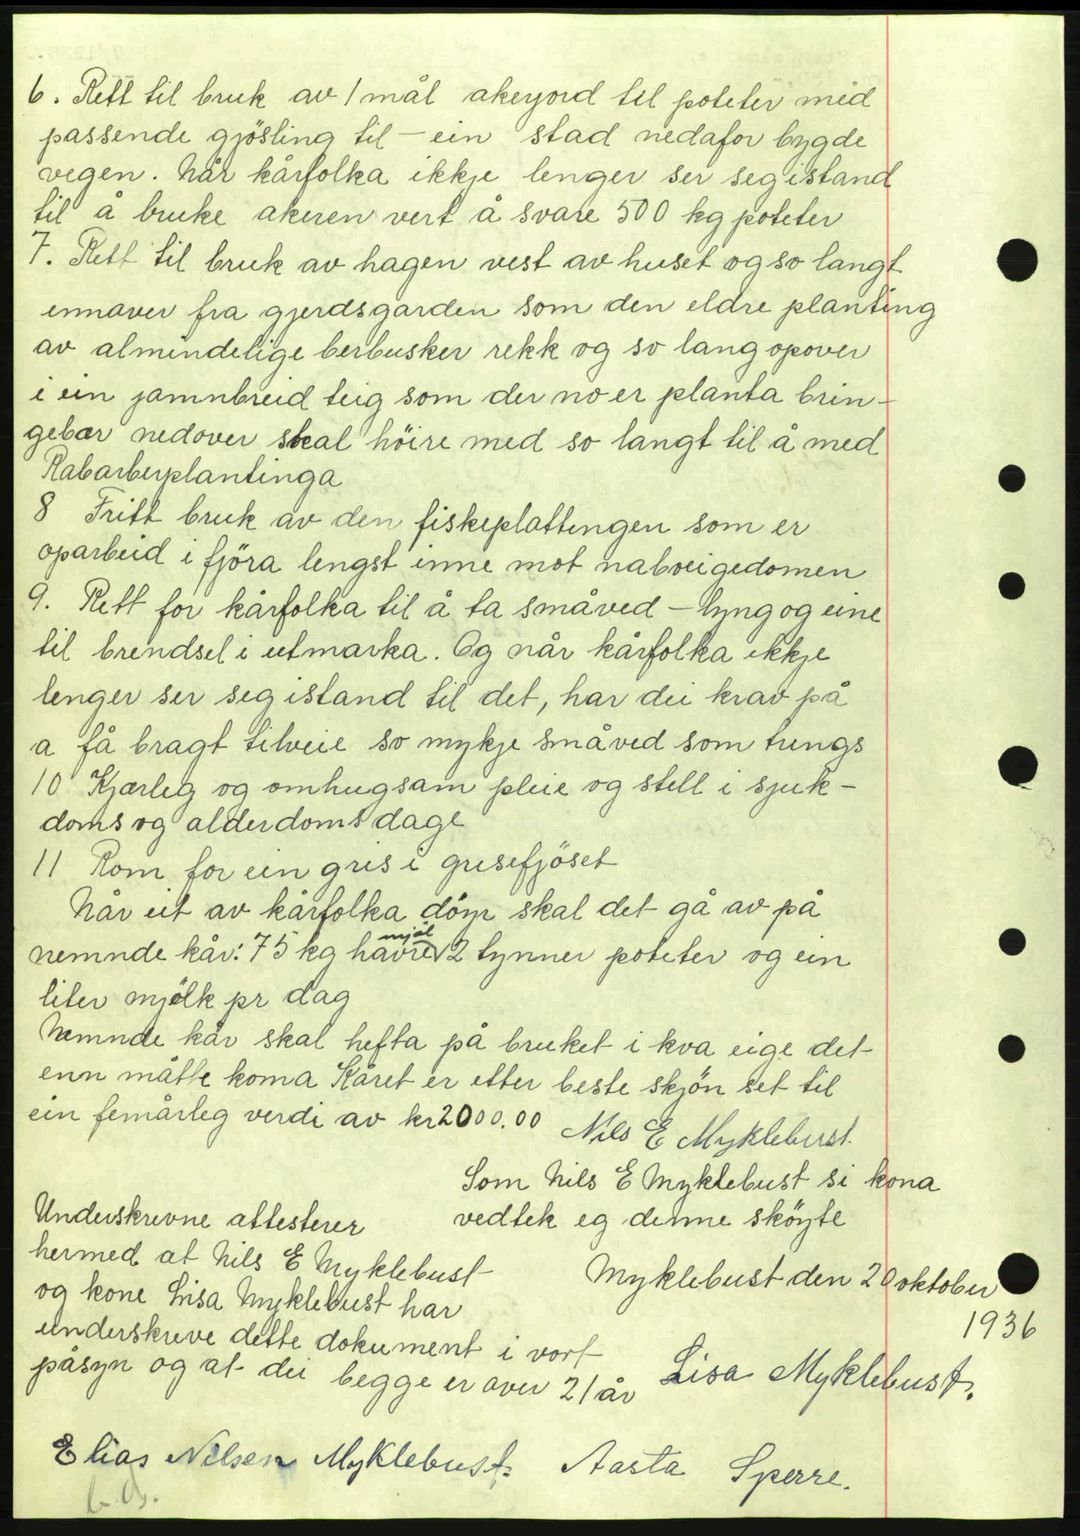 6. Rett til bruk av 1 mål akerjord til poteter med
passende gjösling til – ein stad nedafor bygde
vegen. Når kårfolka ikkje lenger ser seg istand
til å bruke akeren vert å svare 500 kg poteter
7. Rett til bruk av hagen vest av huset og so langt
ennaver fra gjerdsgarden som den eldre planting
av almindelige berbusker rekk og so lang opover
i ein jamnbreid teig som der no er planta brin-
gebær nedover skal höire med so langt til å med
Rabarberplantinga
8 Fritt bruk av den fiskeplattingen som er
oparbeid i fjöra lengst inne mot naboeigedomen
9. Rett for kårfolka til å ta småved – lyng og eine
til brendsel i utmarka. Og når kårfolka ikkje
lenger ser seg istand til det, har dei krav på
a få bragt tilveie so mykje småved som trengs
10 Kjærleg og omhugsam pleie og stell i sjuk-
doms og alderdoms dage
11 Rom for ein gris i grisefjöset
Når eit av kårfolka döyr skal det gå av på
nemnde kår: 75 kg havremjöl 2 tynner poteter og ein
liter mjölk pr dag
Nemnde kår skal hefta på bruket i kva eige det
enn måtte koma Kåret er etter beste skjön set til
ein femårleg verdi av kr 2000.00 Nils E Myklebust.
Som Nils E Myklebust si kona
vedtek eg denne sköyte
Myklebust den 20 oktober
1936
Lisa Myklebust.
Underskrevne attesterer
hermed at Nils E Myklebust
og kone Lisa Myklebust har
underskreve dette dokument i vort
påsyn og at dei begge er over 21 år
Elias Nilsen Myklebust. Aasta Sperre.